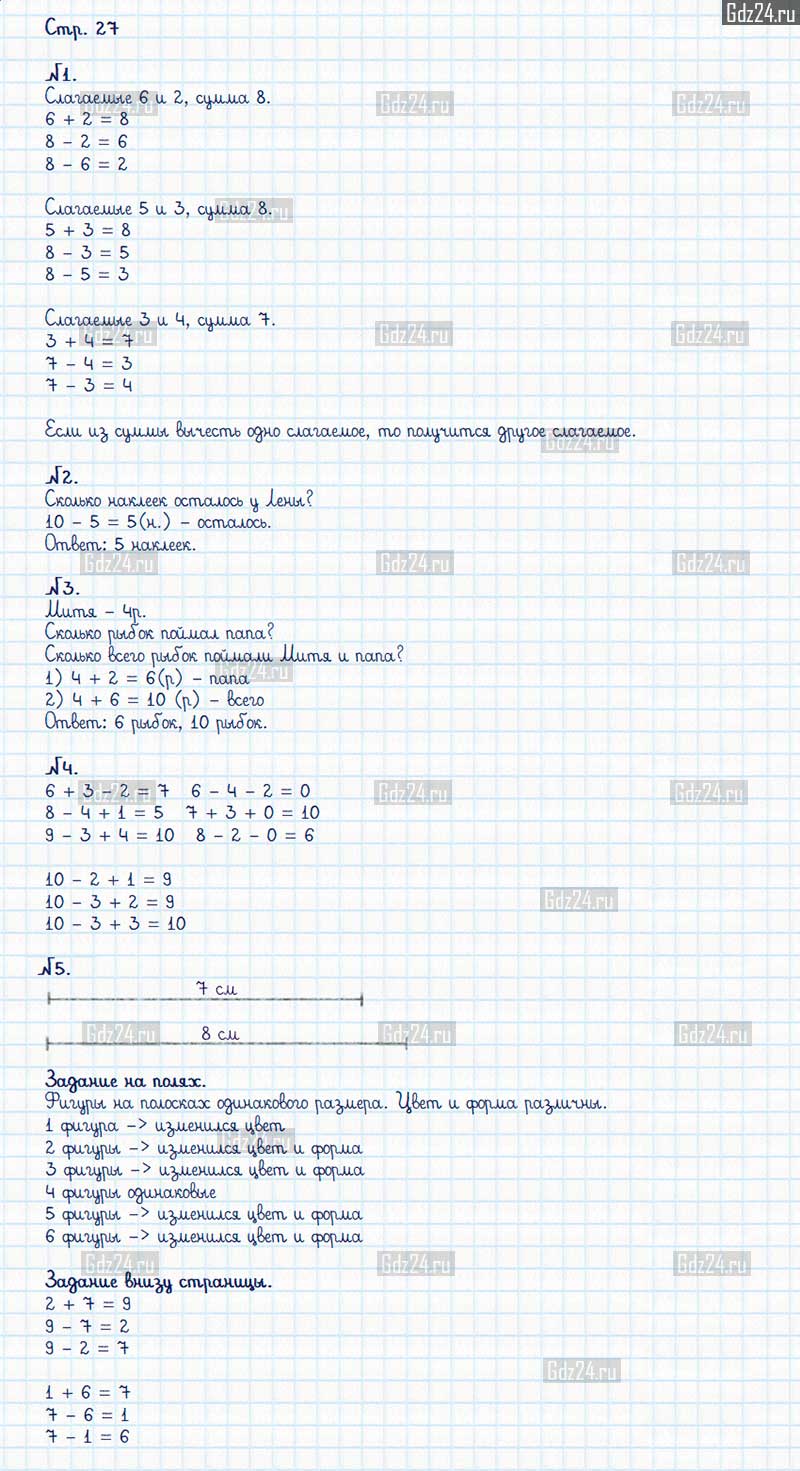 Gdz24.ru
Стр. 27
№1.
Слагаемые 6 и 2, сумма 8.
6 + 2 = 8
8 - 2 = 6
8 - 6 = 2
Слагаемые 5 и 3, сумма 8.
5 + 3 = 8
8 - 3 = 5
8 - 5 = 3
Слагаемые 3 и 4, сумма 7.
3 + 4 = 7
7 - 4 = 3
7 - 3 = 4
Если из суммы вычесть одно слагаемое, то получится другое слагаемое.
№2.
Сколько наклеек осталось у Лены?
10 - 5 = 5(н.) - осталось.
Ответ: 5 наклеек.
№3.
Митя - 4р.
Сколько рыбок поймал папа?
Сколько всего рыбок поймали Митя и папа?
1) 4 + 2 = 6(р) - папа
2) 4 + 6 = 10 (р) - всего
Ответ: 6 рыбок, 10 рыбок.
№4.
6 + 3 - 2 = 7 6 - 4 - 2 = 0
8 - 4 + 1 = 5 7 + 3 + 0 = 10
9 - 3 + 4 = 10 8 - 2 - 0 = 6
10 - 2 + 1 = 9
10 - 3 + 2 = 9
10 - 3 + 3 = 10
№5.
7 см
8 см
Задание на полях.
Фигуры на полосках одинакового размера. Цвет и форма различны.
1 фигура -> изменился цвет
2 фигуры -> изменился цвет и форма
3 фигуры -> изменился цвет и форма
4 фигуры одинаковые
5 фигуры -> изменился цвет и форма
6 фигуры -> изменился цвет и форма
Задание внизу страницы.
2 + 7 = 9
9 - 7 = 2
9 - 2 = 7
1 + 6 = 7
7 - 6 = 1
7 - 1 = 6